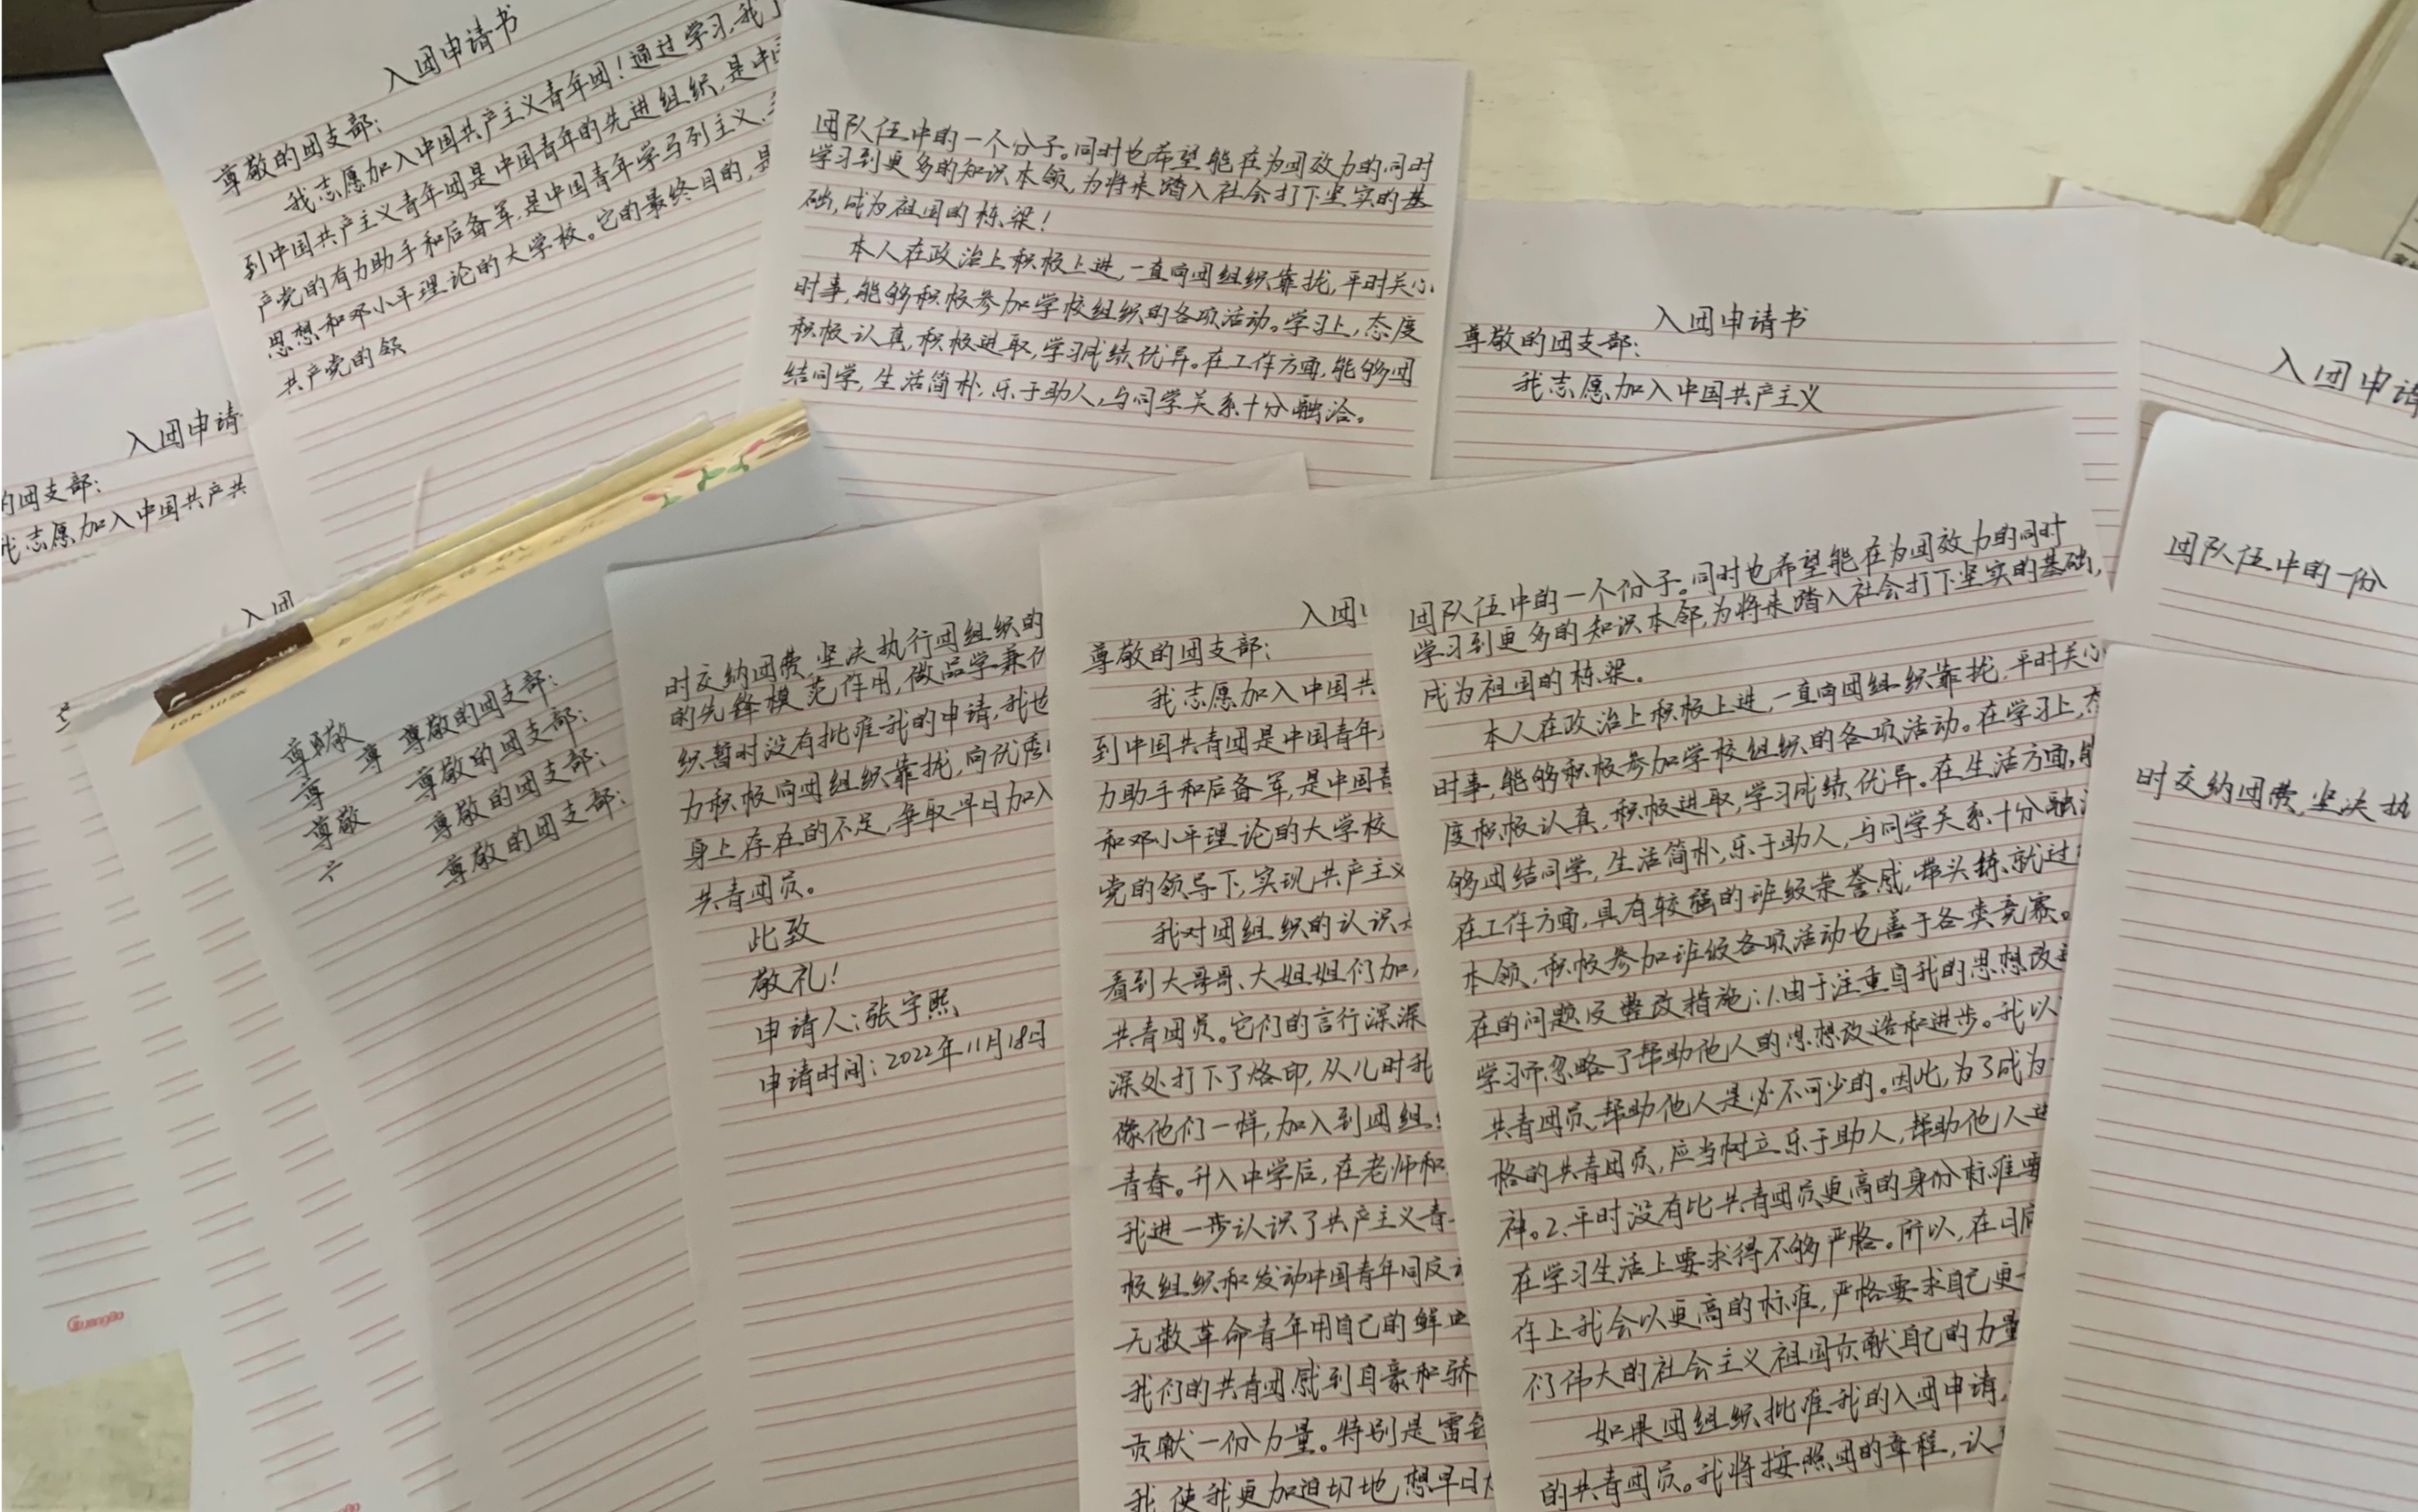 入团申请书
尊敬的团支部:
我志愿加入中国共产主义青年团!通过学习,我
到中国共产主义青年团是中国青年的先进组织,是中
产党的有力助手和后备军,是中国青年学马列主义、
思想和邓小平理论的大学校。它的最终目的,是
共产党的领
团队伍中的一个分子。同时也希望能在为团效力的同时
学习到更多的知识本领,为将来踏入社会打下坚实的基
础,成为祖国的栋梁!
本人在政治上积极上进,一直向团组织靠拢,平时关心
时事,能够积极参加学校组织的各项活动。学习上,态度
积极认真,积极进取,学习成绩优异。在工作方面,能够团
结同学,生活简朴,乐于助人,与同学关系十分融洽。
入团申请书
尊敬的团支部:
我志愿加入中国共产主义
入团申请
入团申请
的团支部:
我志愿加入中国共产共
入团
尊敬
尊 尊 尊敬的团支部:
尊敬 尊敬的团支部:
尊敬的团支部:
尊敬的团支部:
时交纳团费,坚决执行团组织的
的先锋模范作用,做品学兼优
织暂时没有批准我的申请,我也
力积极向团组织靠拢,向优秀
身上存在的不足,争取早日加入
共青团员。
此致
敬礼!
申请人:张宇熙
申请时间:2022年11月18日
入团
尊敬的团支部:
我志愿加入中国共
到中国共青团是中国青年
力助手和后备军,是中国青
和邓小平理论的大学校
党的领导下,实现共产主义
我对团组织的认识
看到大哥哥、大姐姐们加
共青团员。它们的言行深深
深处打下了烙印,从儿时我
像他们一样,加入到团组
青春。升入中学后,在老师和
我进一步认识了共产主义青
极组织和发动中国青年同反
无数革命青年用自己的鲜血
我们的共青团感到自豪和骄
贡献一份力量。特别是雷
我,使我更加迫切地,想早日
团队伍中的一个份子。同时也希望能在为团效力的同时
学习到更多的知识本邻,为将来踏入社会打下坚实的基础,
成为祖国的栋梁。
本人在政治上积极上进,一直向团组织靠拢,平时关心
时事,能够积极参加学校组织的各项活动。在学习上,态
度积极认真,积极进取,学习成绩优异。在生活方面,能
够团结同学,生活简朴,乐于助人,与同学关系十分融洽
在工作方面,具有较强的班级荣誉感,带头练就过
本领,积极参加班级各项活动也善于各类竞赛。
在的问题及整改措施:1.由于注重自我的思想改
学习而忽略了帮助他人的思想改造和进步。我以
共青团员,帮助他人是必不可少的。因此,为了成为
格的共青团员,应当树立乐于助人,帮助他人进
神。2.平时没有比共青团员更高的身份标准要
在学习生活上要求得不够严格。所以,在日
作上我会以更高的标准,严格要求自己更
们伟大的社会主义祖国贡献自己的力量
如果团组织批准我的入团申请,
的共青团员。我将按照团的章程,认
团队伍中的一份
时交纳团费,坚决执
GuangBo